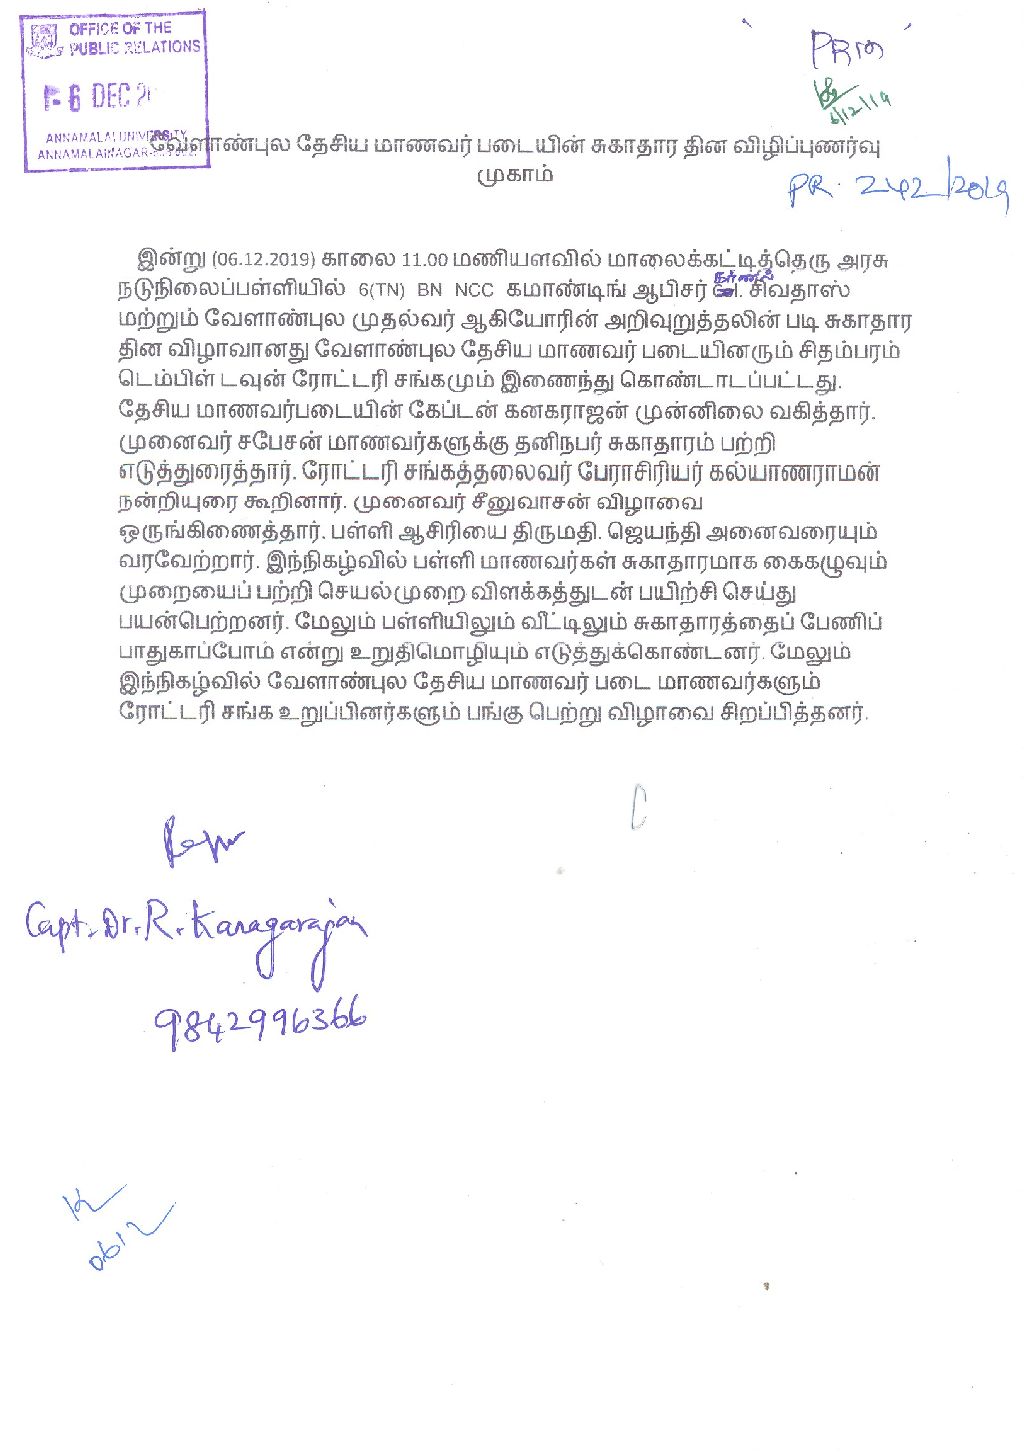 OFFICE OF THE
PUBLIC RELATIONS
6 DEC
ANNAMALAI UNIVERSITY
PR
6/12/19
வேளாண்புல தேசிய மாணவர் படையின் சுகாதார தின விழிப்புணர்வு
முகாம்
PR. 242/2019
இன்று (06.12.2019) காலை 11.00 மணியளவில் மாலைக்கட்டித்தெரு அரசு
நடுநிலைப்பள்ளியில் 6(TN) BN NCC கமாண்டிங் ஆபிசர் கர்னல். சிவதாஸ்
மற்றும் வேளாண்புல முதல்வர் ஆகியோரின் அறிவுறுத்தலின் படி சுகாதார
தின விழாவானது வேளாண்புல தேசிய மாணவர் படையினரும் சிதம்பரம்
டெம்பிள் டவுன் ரோட்டரி சங்கமும் இணைந்து கொண்டாடப்பட்டது.
தேசிய மாணவர்படையின் கேப்டன் கனகராஜன் முன்னிலை வகித்தார்.
முனைவர் சபேசன் மாணவர்களுக்கு தனிநபர் சுகாதாரம் பற்றி
எடுத்துரைத்தார். ரோட்டரி சங்கத்தலைவர் பேராசிரியர் கல்யாணராமன்
நன்றியுரை கூறினார். முனைவர் சீனுவாசன் விழாவை
ஒருங்கிணைத்தார். பள்ளி ஆசிரியை திருமதி. ஜெயந்தி அனைவரையும்
வரவேற்றார். இந்நிகழ்வில் பள்ளி மாணவர்கள் சுகாதாரமாக கைகழுவும்
முறையைப் பற்றி செயல்முறை விளக்கத்துடன் பயிற்சி செய்து
பயன்பெற்றனர். மேலும் பள்ளியிலும் வீட்டிலும் சுகாதாரத்தைப் பேணிப்
பாதுகாப்போம் என்று உறுதிமொழியும் எடுத்துக்கொண்டனர். மேலும்
இந்நிகழ்வில் வேளாண்புல தேசிய மாணவர் படை மாணவர்களும்
ரோட்டரி சங்க உறுப்பினர்களும் பங்கு பெற்று விழாவை சிறப்பித்தனர்.
Capt. Dr. R. Kanagarajan
9842996366
0612